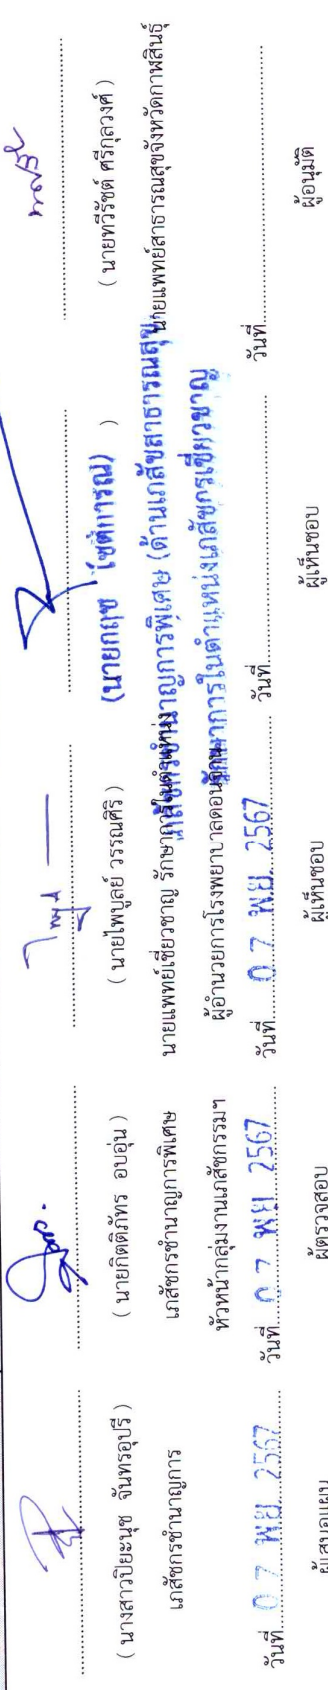 ( นางสาวปิยะนุช จันทรอุปรี )
เภสัชกรชำนาญการ
วันที่ 07 พย. 2567
ผู้เสนอแผน
( นายกิตติภัทร อบอุ่น )
เภสัชกรชำนาญการพิเศษ
หัวหน้ากลุ่มงานเภสัชกรรมฯ
วันที่ 07 พย. 2567
ผู้ตรวจสอบ
( นายไพบูลย์ วรรณศิริ )
นายแพทย์เชี่ยวชาญ รักษาการในตำแหน่ง
ผู้อำนวยการโรงพยาบาลดอนจาน
วันที่ 07 พย. 2567
ผู้เห็นชอบ
(นายกฤช โชติการณ์)
เภสัชกรชำนาญการพิเศษ (ด้านเภสัชสาธารณสุข)
รักษาการในตำแหน่งเภสัชกรเชี่ยวชาญ
วันที่
ผู้เห็นชอบ
( นายทวีรัชต์ ศรีกุลวงศ์ )
นายแพทย์สาธารณสุขจังหวัดกาฬสินธุ์
วันที่
ผู้อนุมัติ